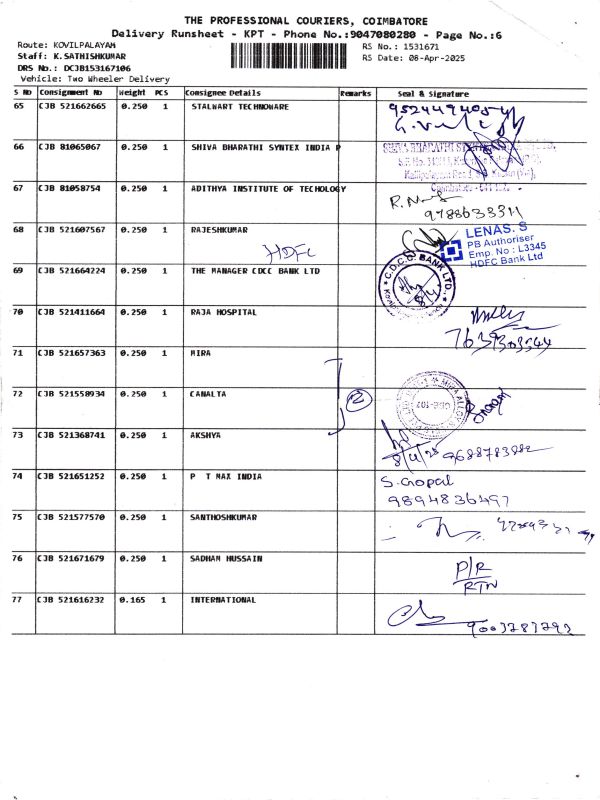 THE PROFESSIONAL COURIERS, COIMBATORE
Delivery Runsheet - KPT - Phone No.:9047080280 - Page No.:6
Route: KOVILPALAYAM
RS No. : 1531671
Staff: K.SATHISHKUMAR
RS Date: 08-Apr-2025
DRS No.: DCJB153167106
Vehicle: Two Wheeler Delivery
S No Consignment No Weight PCS Consignee Details Remarks Seal & Signature
65 CJB 521662665 0.250 1 STALWART TECHNOWARE
9524494054
66 CJB 81065067 0.250 1 SHIVA BHARATHI SYNTEX INDIA P
67 CJB 81058754 0.250 1 ADITHYA INSTITUTE OF TECHOLOGY
9788633311
68 CJB 521607567 0.250 1 RAJESHKUMAR
HDFC
LENAS. S
PB Authoriser
Emp. No : L3345
HDFC Bank Ltd
69 CJB 521664224 0.250 1 THE MANAGER CDCC BANK LTD
C.D.C.C. BANK LTD.,
8/4
70 CJB 521411664 0.250 1 RAJA HOSPITAL
71 CJB 521657363 0.250 1 MIRA
72 CJB 521558934 0.250 1 CANALTA
2
73 CJB 521368741 0.250 1 AKSHYA
8/4/25 9688783882
74 CJB 521651252 0.250 1 P T MAX INDIA
S. Gopal
9894836497
75 CJB 521577570 0.250 1 SANTHOSHKUMAR
76 CJB 521671679 0.250 1 SADHAM HUSSAIN
P/R
RTN
77 CJB 521616232 0.165 1 INTERNATIONAL
9003787292